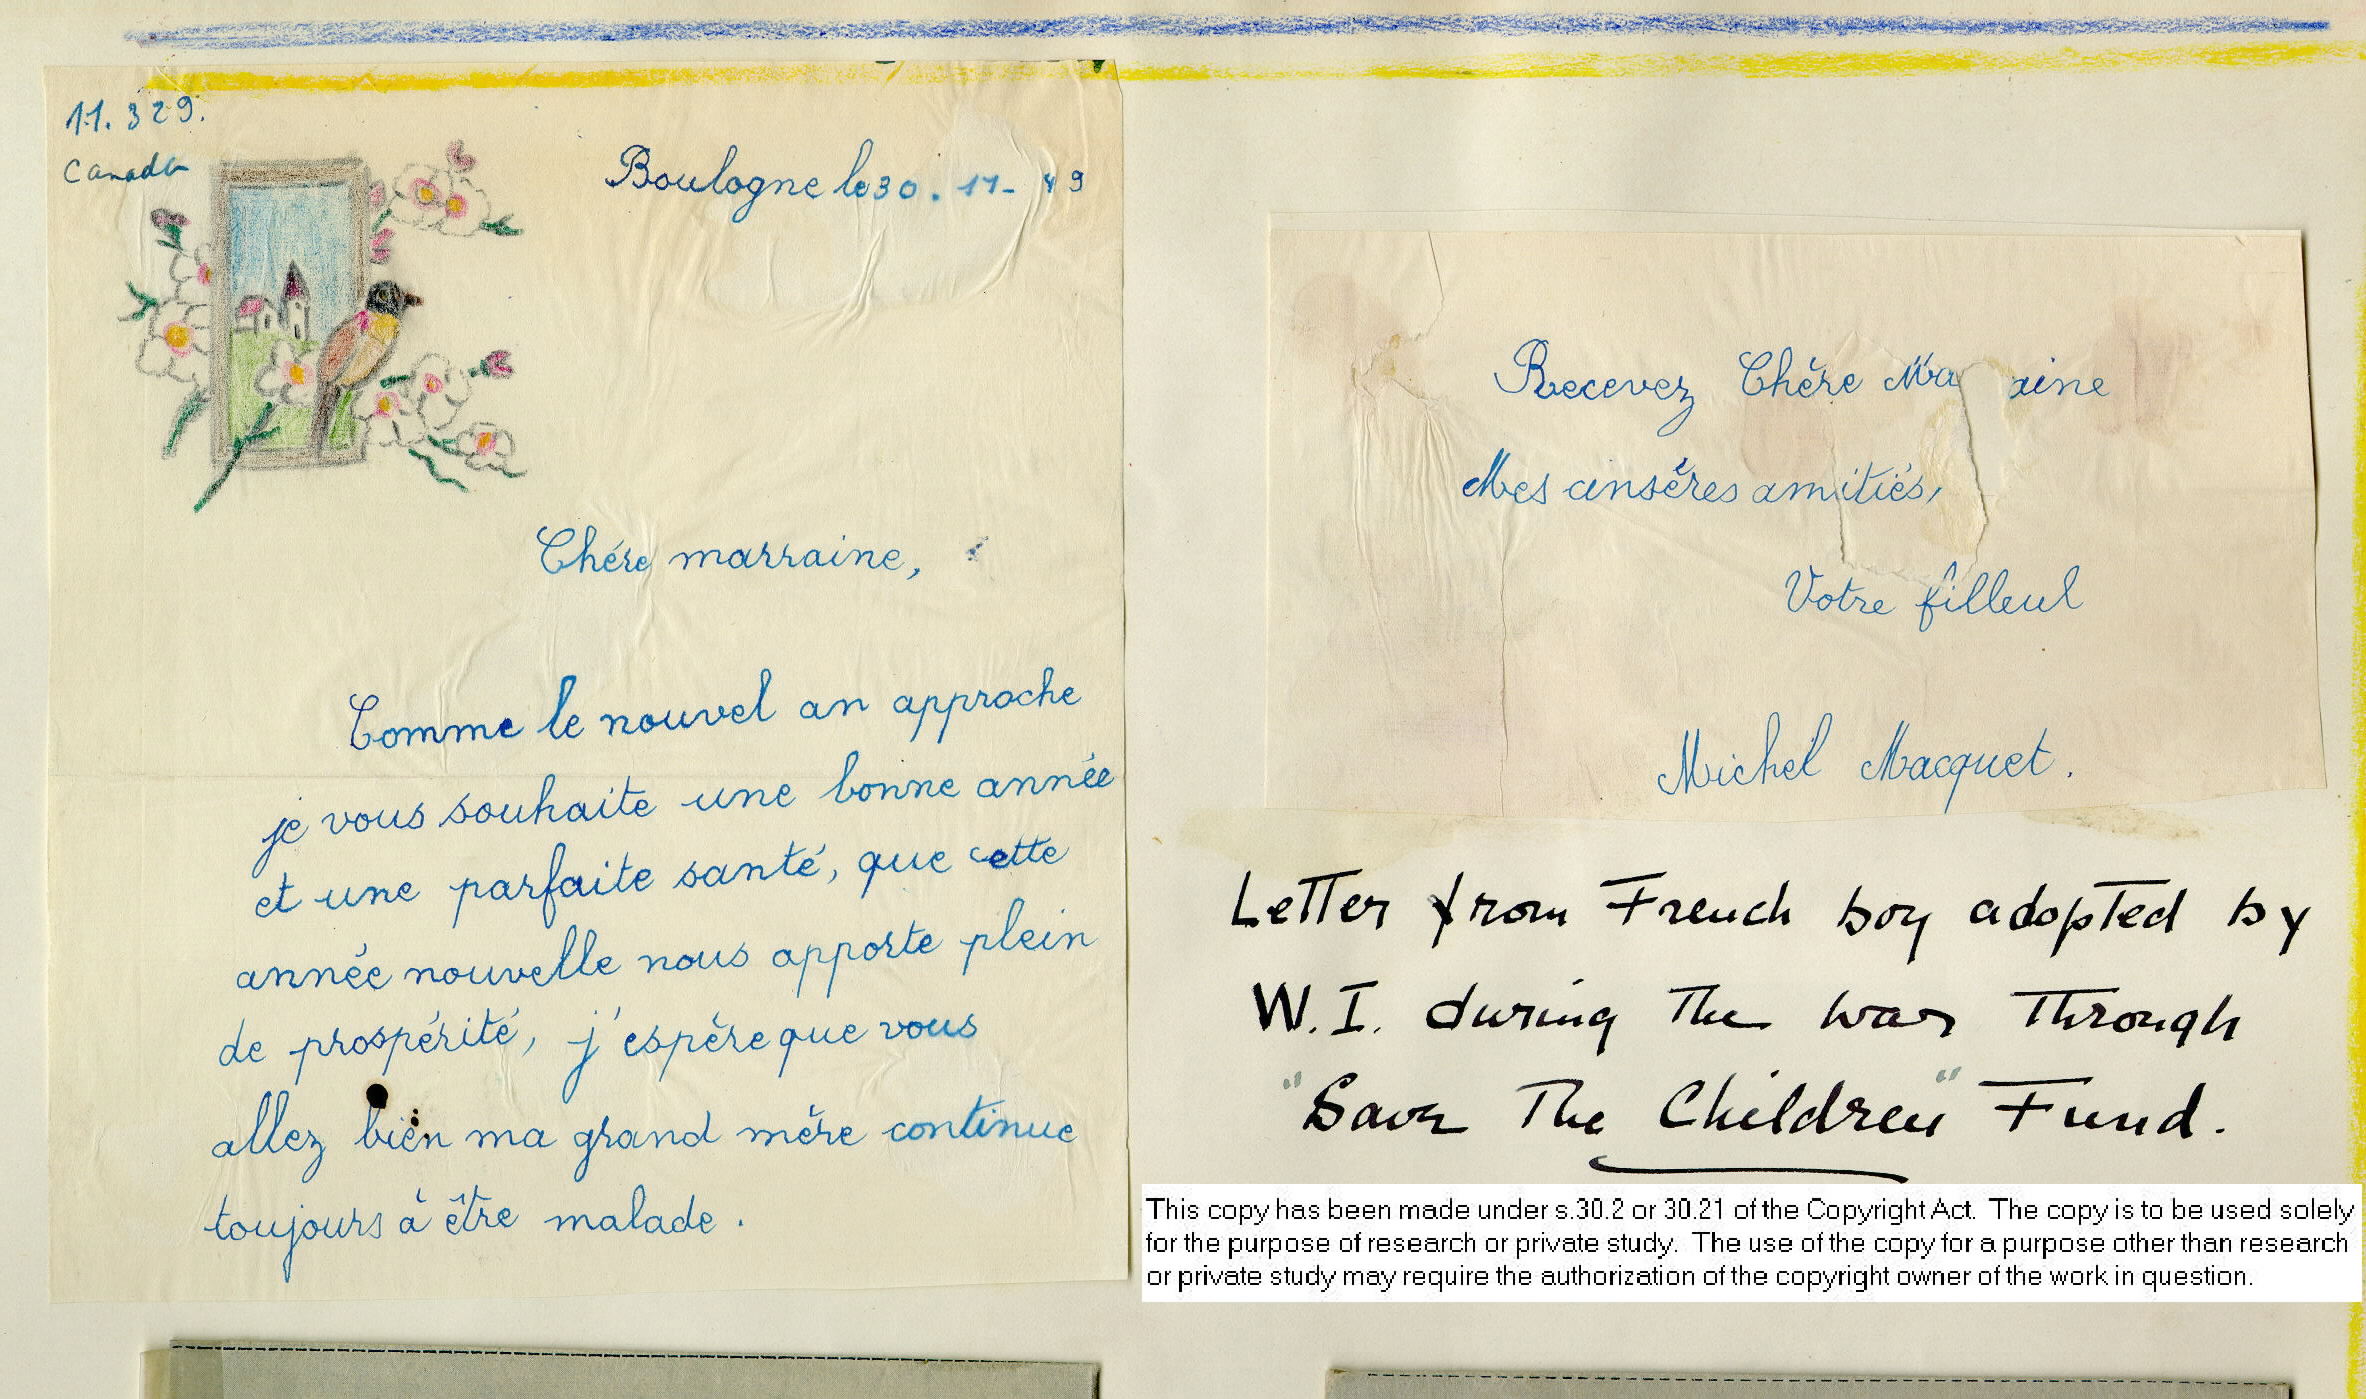 11.329.
Canada
Boulogne le 30. 11- 49
Chére marraine,
Comme le nouvel an approche
je vous souhaite une bonne année
et une parfaite santé, que cette
année nouvelle nous apporte plein
de prospérité, j'espère que vous
allez bien ma grand mère continue
toujours à être malade.
Recevez Chère Ma raine
Mes cinsères amitiés,
Votre filleul
Michel Macquet.
Letter from French boy adopted by
W.I. during The war Through
"Save The Children" Fund.
This copy has been made under s.30.2 or 30.21 of the Copyright Act. The copy is to be used solely
for the purpose of research or private study. The use of the copy for a purpose other than research
or private study may require the authorization of the copyright owner of the work in question.